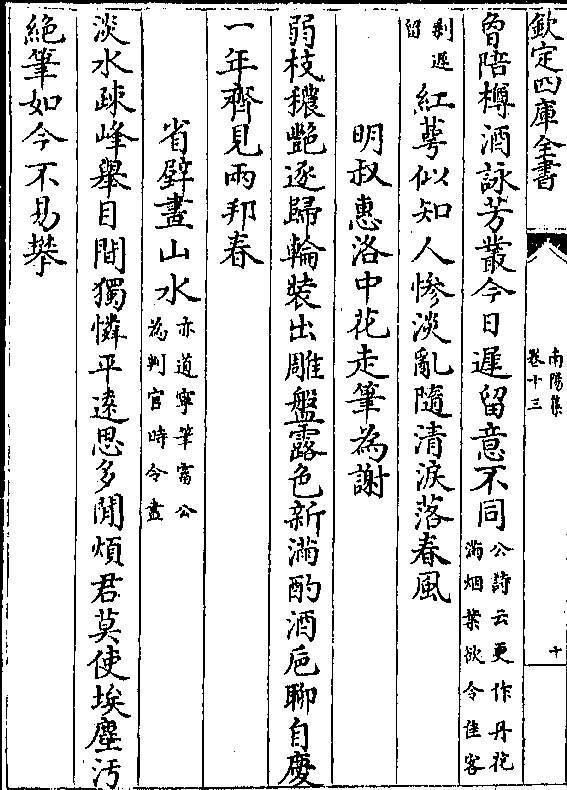 欽定四庫全書
南陽集
卷十三
十
曾陪樽酒詠芳叢今日遲留意不同公詩云更作丹花滿烟葉欲令佳客
剩遲留紅萼似知人慘淡亂隨清淚落春風
明叔惠洛中花走筆為謝
弱枝穠艷逐歸輪裝出雕盤露色新滿酌酒巵聊自慶
一年齊見兩邦春
省壁畫山水亦道寧筆富公為判官時令畫
淡水疎峰舉目間獨憐平遠思多閒煩君莫使埃塵汚
絶筆如今不易攀